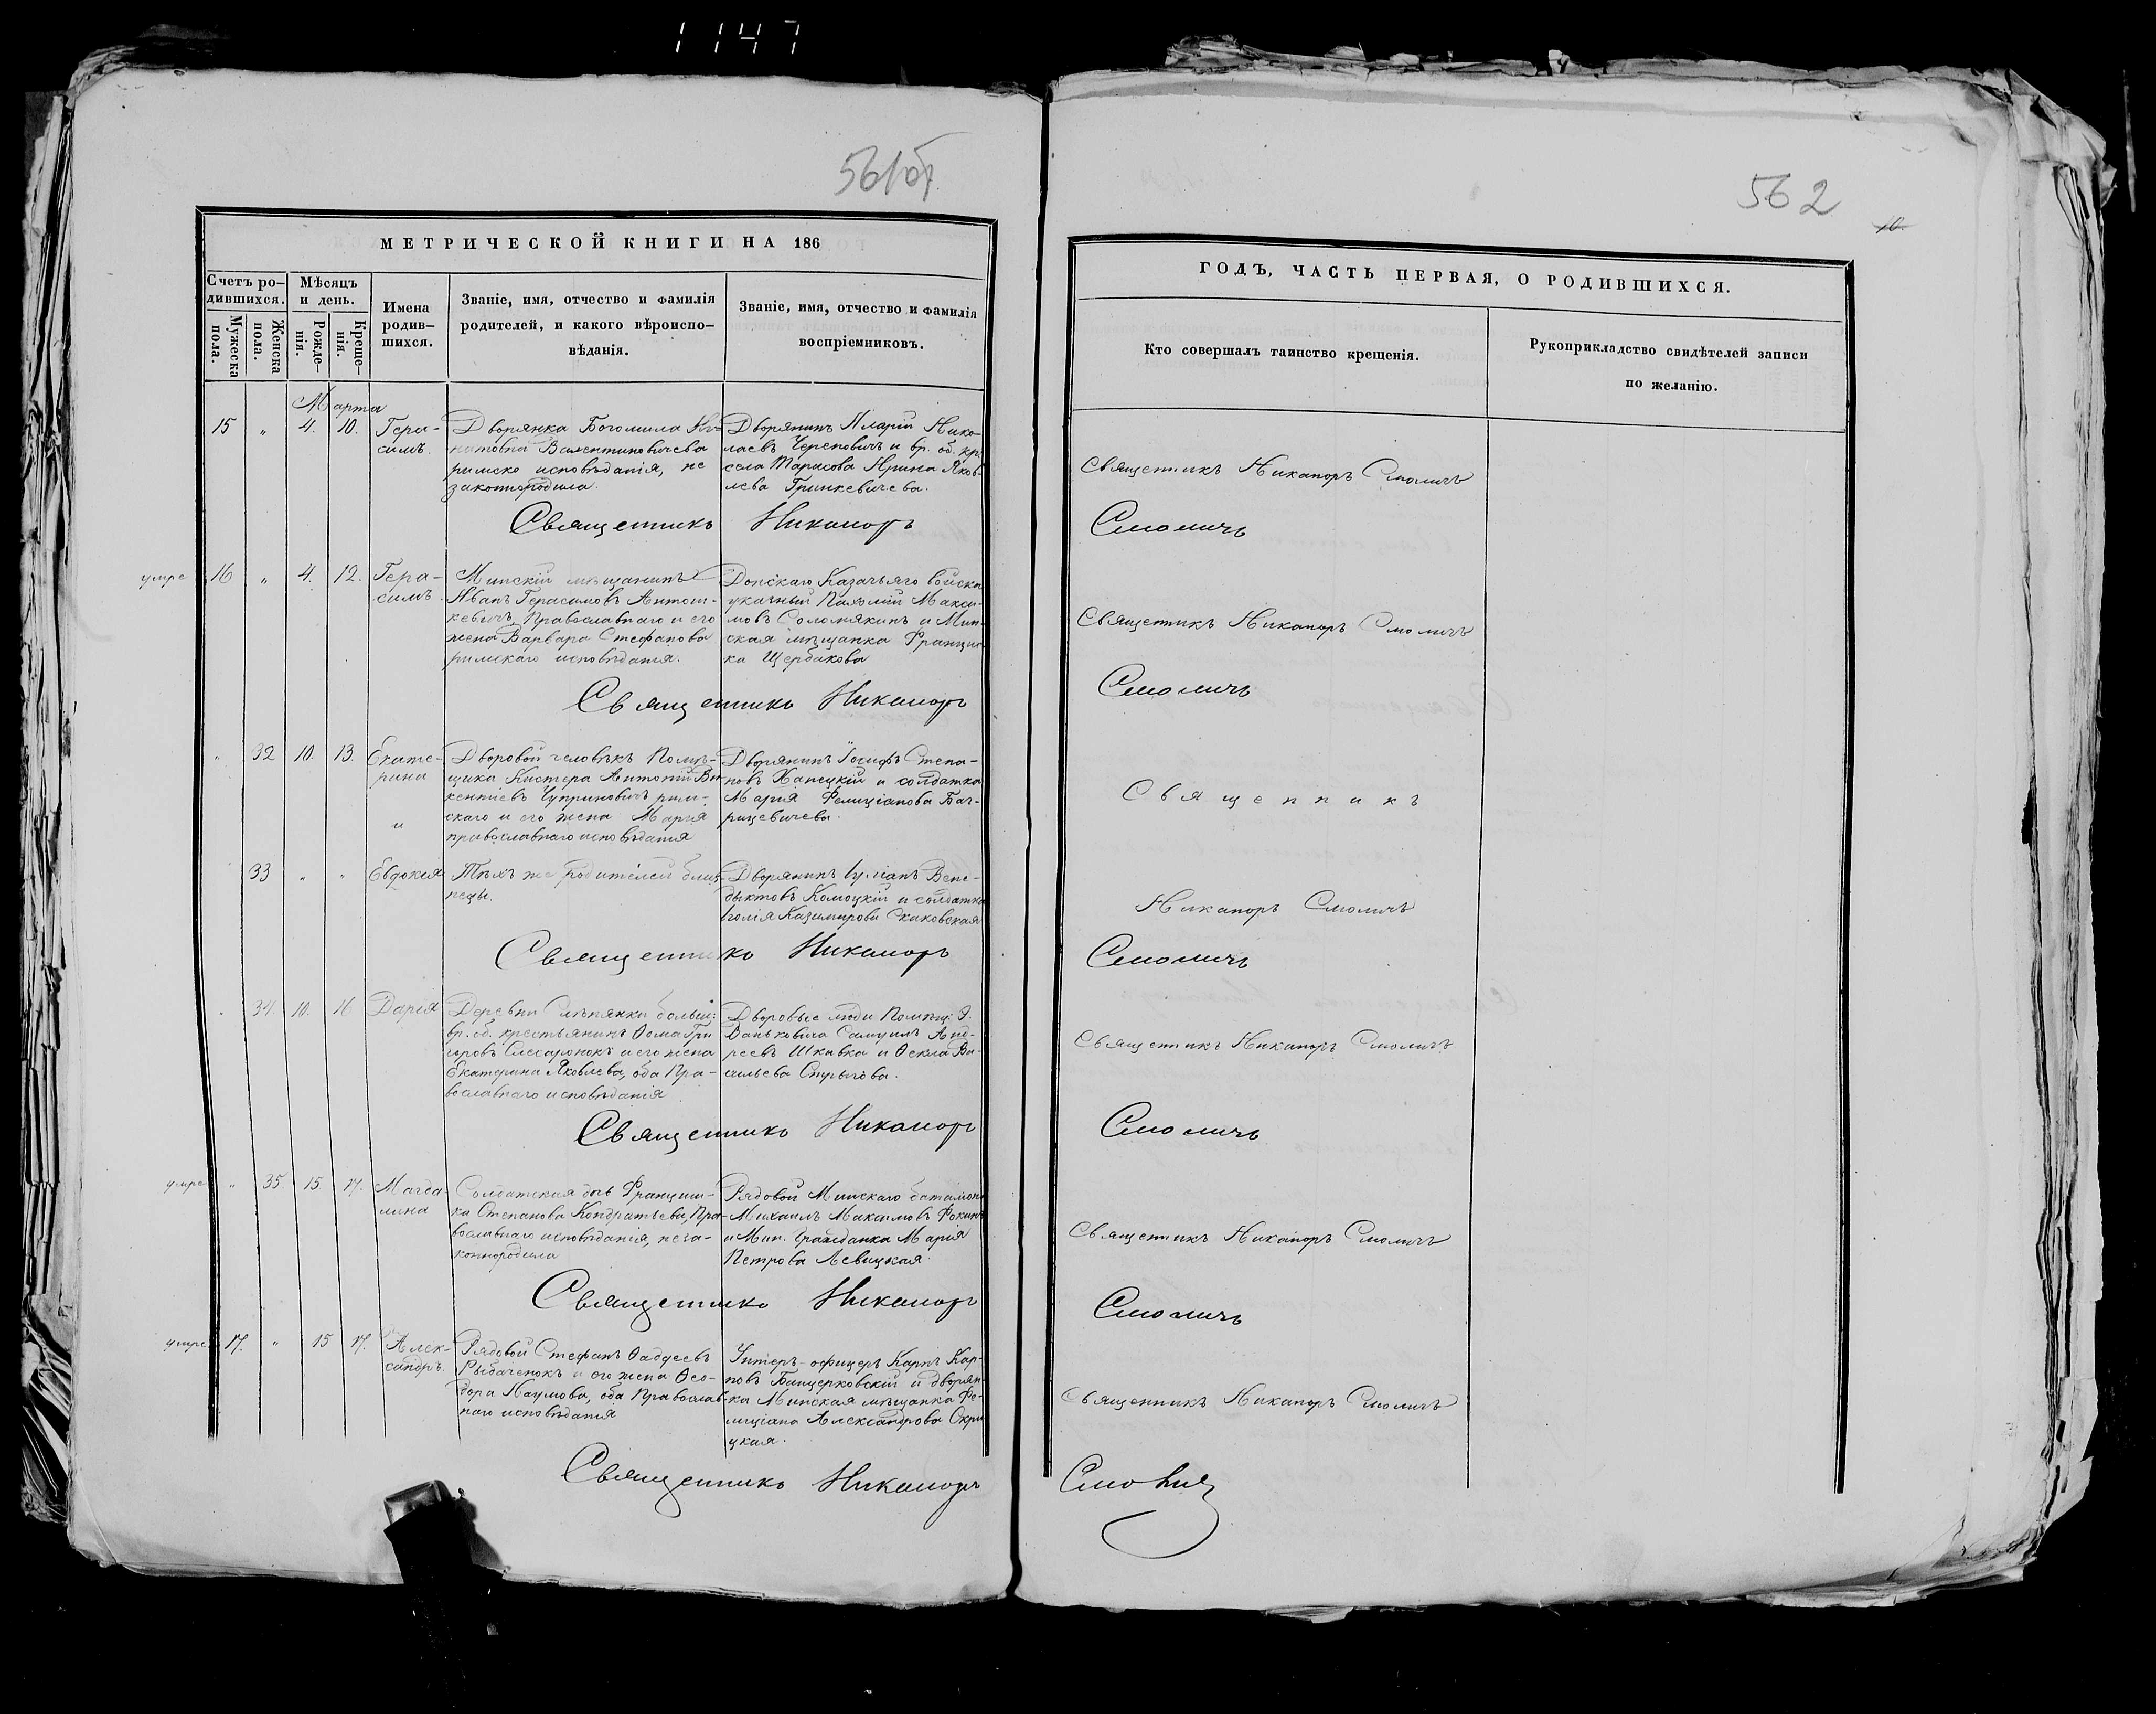 1147
561об
562
МЕТРИЧЕСКОЙ КНИГИ НА 186
Счетъ ро-
дившихся.
Мужеска
пола.
Женска
пола.
Мѣсяцъ
и день.
Рожде-
нія.
Креще-
нія.
Имена
родив-
шихся.
Званіе, имя, отчество и фамилія
родителей, и какого вѣроиспо-
вѣданія.
Званіе, имя, отчество и фамилія
воспріемниковъ.
ГОДЪ, ЧАСТЬ ПЕРВАЯ, О РОДИВШИХСЯ.
Кто совершалъ таинство крещенія.
Рукоприкладство свидѣтелей записи
по желанію.
Марта
15 " 4. 10. Гера-
симъ.
Дворянка Богомила
Валентиновичева
римско исповѣданія, не
законнородила.
Дворянинъ Иларій Нико-
лаевъ Череповичъ и вр. об. кр.
села Тарасова Ирина Яков-
лева Гринкевичева.
Священникъ Никаноръ Смоличъ
Священникъ Никаноръ Смоличъ
умре 16 " 4. 12. Гера-
симъ.
Минскій мѣщанинъ
Иванъ Герасимовъ Антош-
кевичъ, Православнаго и его
жена Варвара Стефанова
римскаго исповѣданія.
Донскаго Казачьяго войска
Пахомій Макси-
мовъ Соломякинъ и Мин-
ская мѣщанка Францис-
ка Щербакова
Священникъ Никаноръ Смоличъ
Священникъ Никаноръ Смоличъ
" 32 10. 13. Екате-
рина
и
Дворовой человѣкъ Помѣ-
щика Кистера Антоній Ви-
кентіевъ Чуприновичъ рим-
скаго и его жена Марія
православнаго исповѣданія
Дворянинъ Іосифъ Степа-
новъ Ханецкій и солдатка
Марія Фелиціанова Бач-
рицевичева.
Священникъ
33 " " Евдокія
Тѣхъ же родителей близ-
нецы.
Дворянинъ Іуліанъ Вене-
диктовъ Комоцкій и солдатка
Юлія Казимирова Скаковская
Никаноръ Смоличъ
Священникъ Никаноръ Смоличъ
" 34. 10. 16 Дарія
Деревни Слѣпянки больш:
вр. об. крестьянинъ Ѳома Гри
горовъ Слесаронокъ и его жена
Екатерина Яковлева, оба Пра-
вославнаго исповѣданія
Дворовые люди Помѣщ: Э.
Ваньковича Самуилъ Анд-
реевъ Шкавка и Ѳекла Ва-
сильева Стрыгова.
Священникъ Никаноръ Смоличъ
Священникъ Никаноръ Смоличъ
умре " 35. 15. 17. Магда-
лина
Солдатская дочь Франциш-
ка Степанова Кондратьева, Пра-
вославнаго исповѣданія, неза-
коннородила
Рядовой Минскаго баталіона
Михаилъ Максимовъ Фокинъ
и Мин. Гражданка Марія
Петрова Левицкая.
Священникъ Никаноръ Смоличъ
Священникъ Никаноръ Смоличъ
умре 17. " 15 17. Алек-
сандръ.
Рядовой Стефанъ Ѳаддеевъ
Рыбаченокъ и его жена Ѳео-
дора Наумова, оба Православ-
наго исповѣданія
Унтеръ-офицеръ Карпъ Кар-
повъ Банцерковскій и дворян-
ка Минская мѣщанка Фе-
лиціана Александрова Окри
цкая.
Священникъ Никаноръ Смоличъ
Священникъ Никаноръ Смоличъ